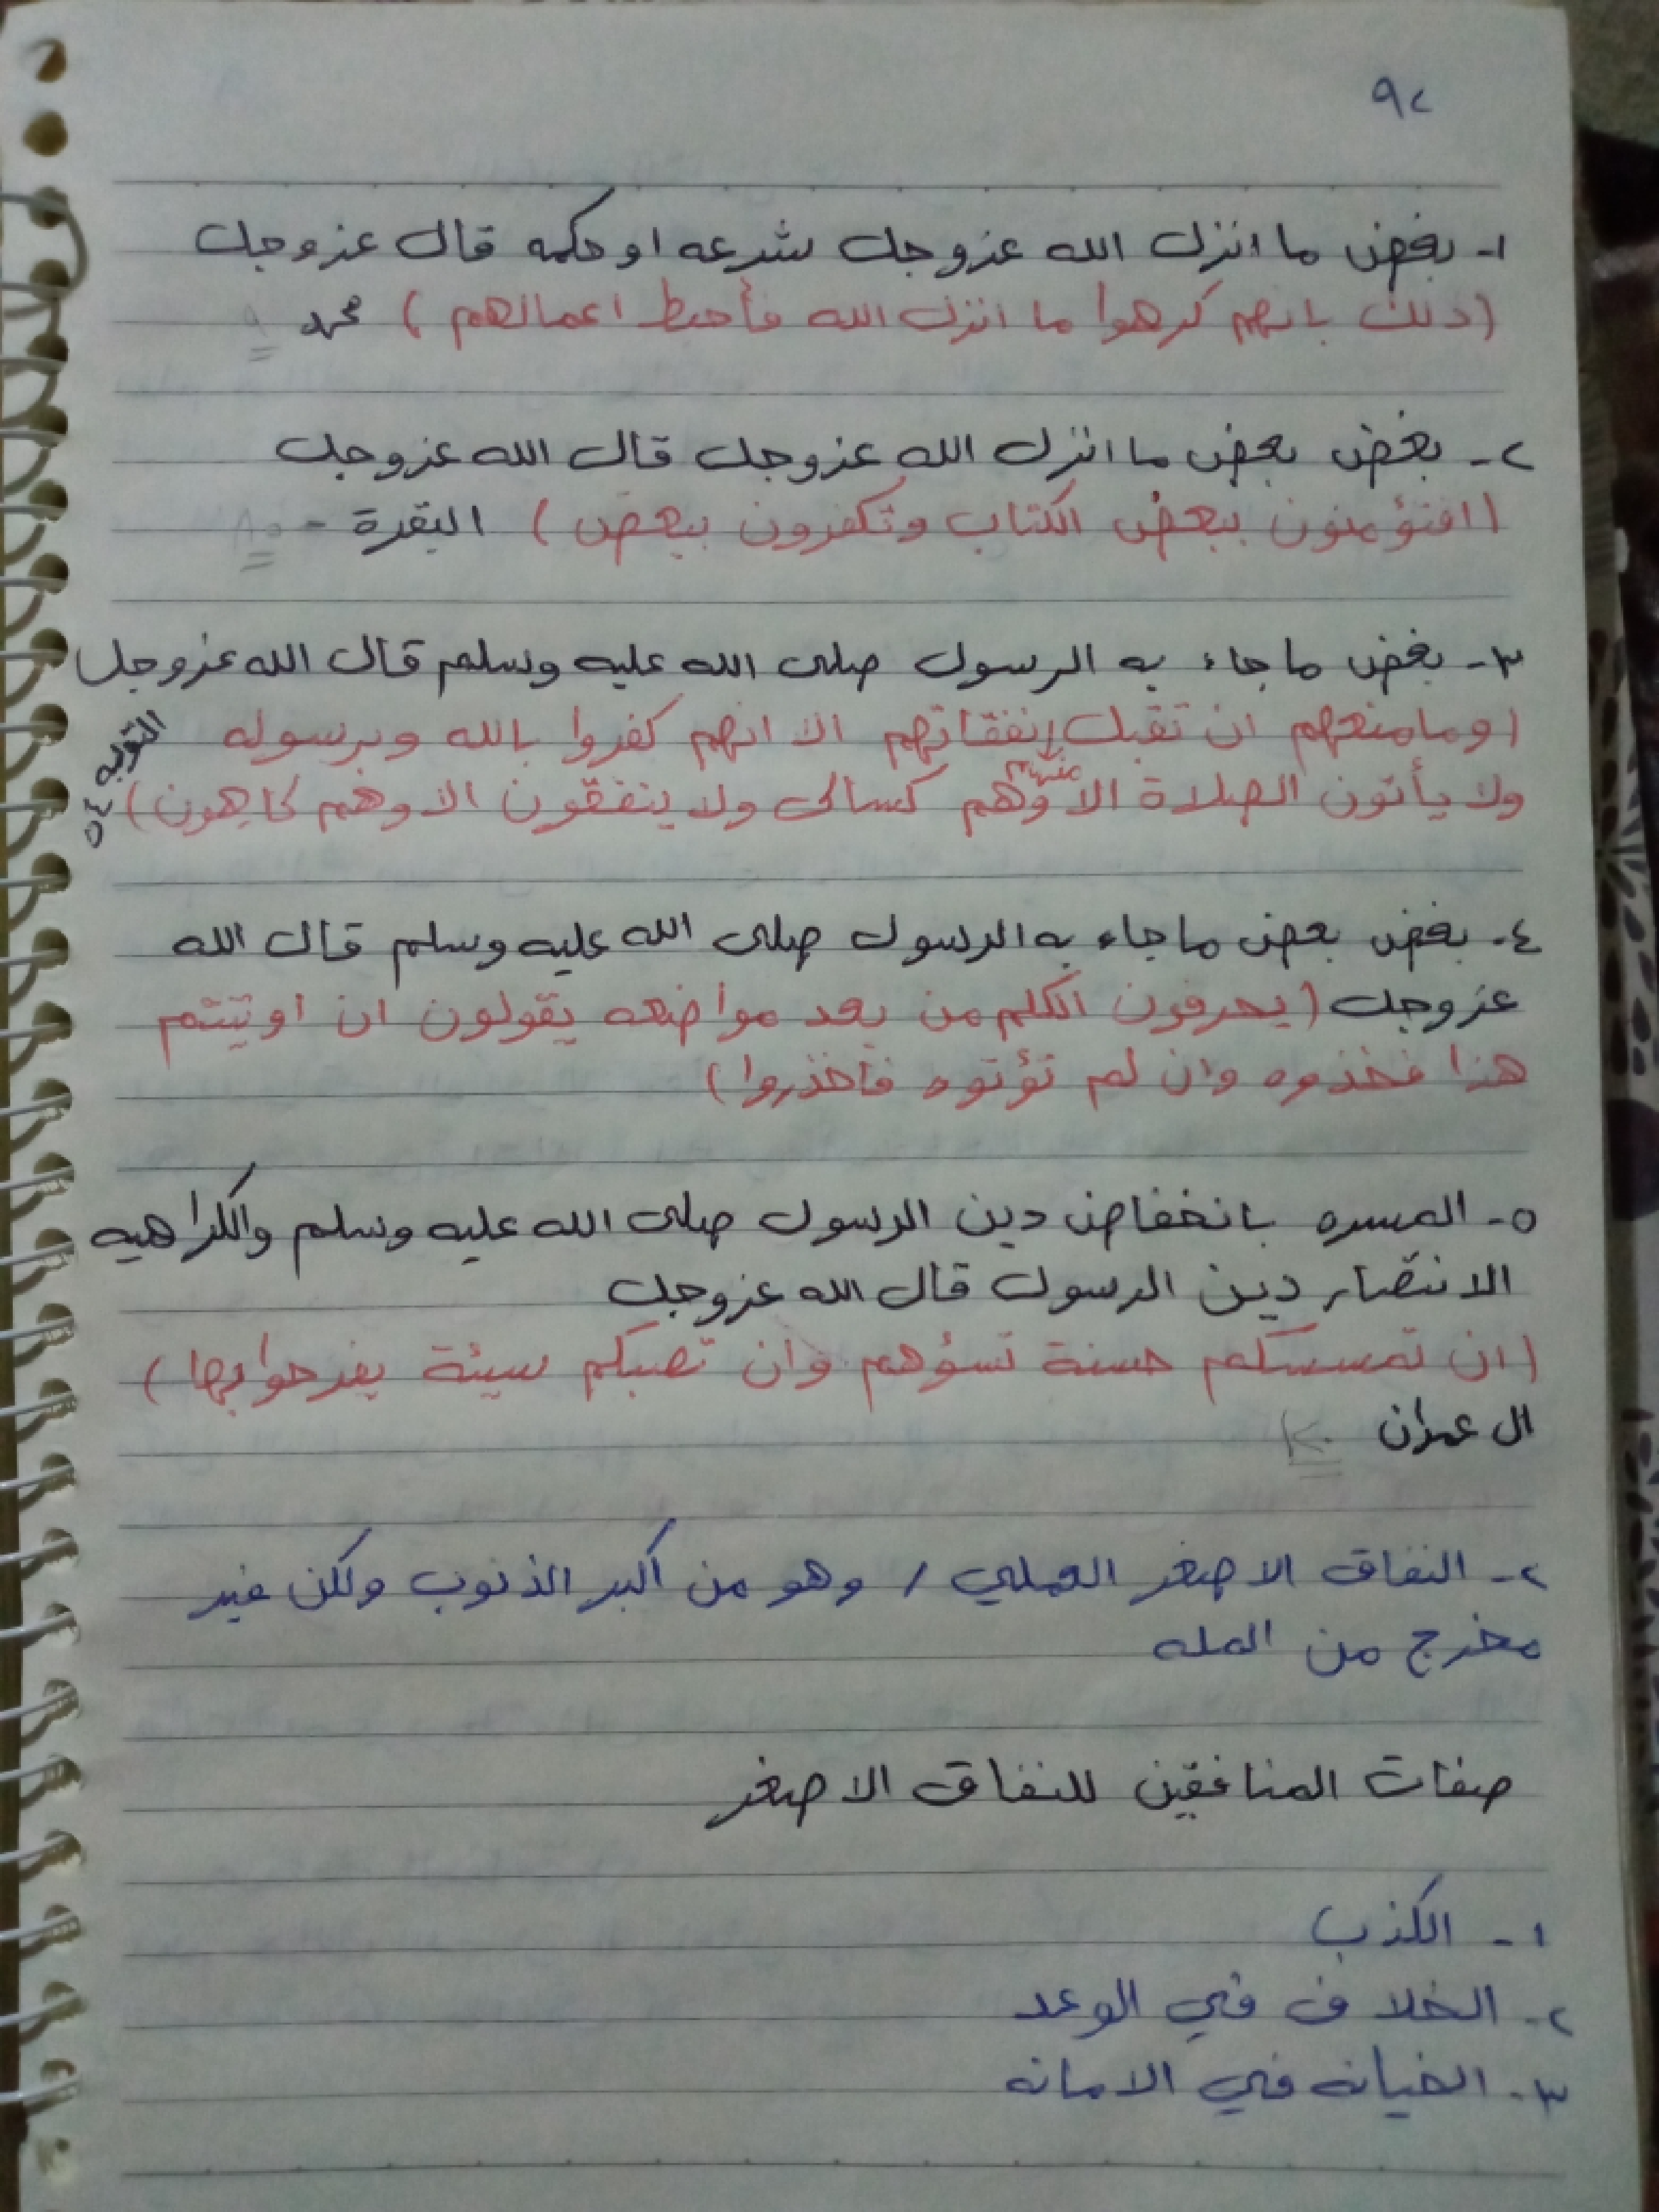 ٩٢
١- بغض ما انزل الله عزوجل بشرعه او حكمه قال عزوجل
(ذلك بانهم كرهوا ما انزل الله فأحبط اعمالهم) محمد ٩
٢- بغض بعض ما انزل الله عزوجل قال الله عزوجل
(افتؤمنون ببعض الكتاب وتكفرون ببعض) البقرة - ٨٥
٣- بغض ما جاء به الرسول صلى الله عليه وسلم قال الله عزوجل
(وما منعهم ان تقبل منهم نفقاتهم الا انهم كفروا بالله وبرسوله
ولا يأتون الصلاة الا وهم كسالى ولا ينفقون الا وهم كاهون) التوبه ٥٤
٤- بغض بعض ما جاء به الرسول صلى الله عليه وسلم قال الله
عزوجل (يحرفون الكلم من بعد مواضعه يقولون ان اوتيتم
هذا فخذوه وان لم تؤتوه فاخذروا)
٥- المسره بانخفاض دين الرسول صلى الله عليه وسلم والكراهيه
الانتصار دين الرسول قال الله عزوجل
(ان تمسسكم حسنة تسؤهم وان تصبكم سيئة يفرحوا بها)
ال عمران ١٢٠
٢- النفاق الاصغر العملي / وهو من اكبر الذنوب ولكن غير
مخرج من المله
صفات المنافقين للنفاق الاصغر
١- الكذب
٢- الخلاف في الوعد
٣- الخيانه في الامانه